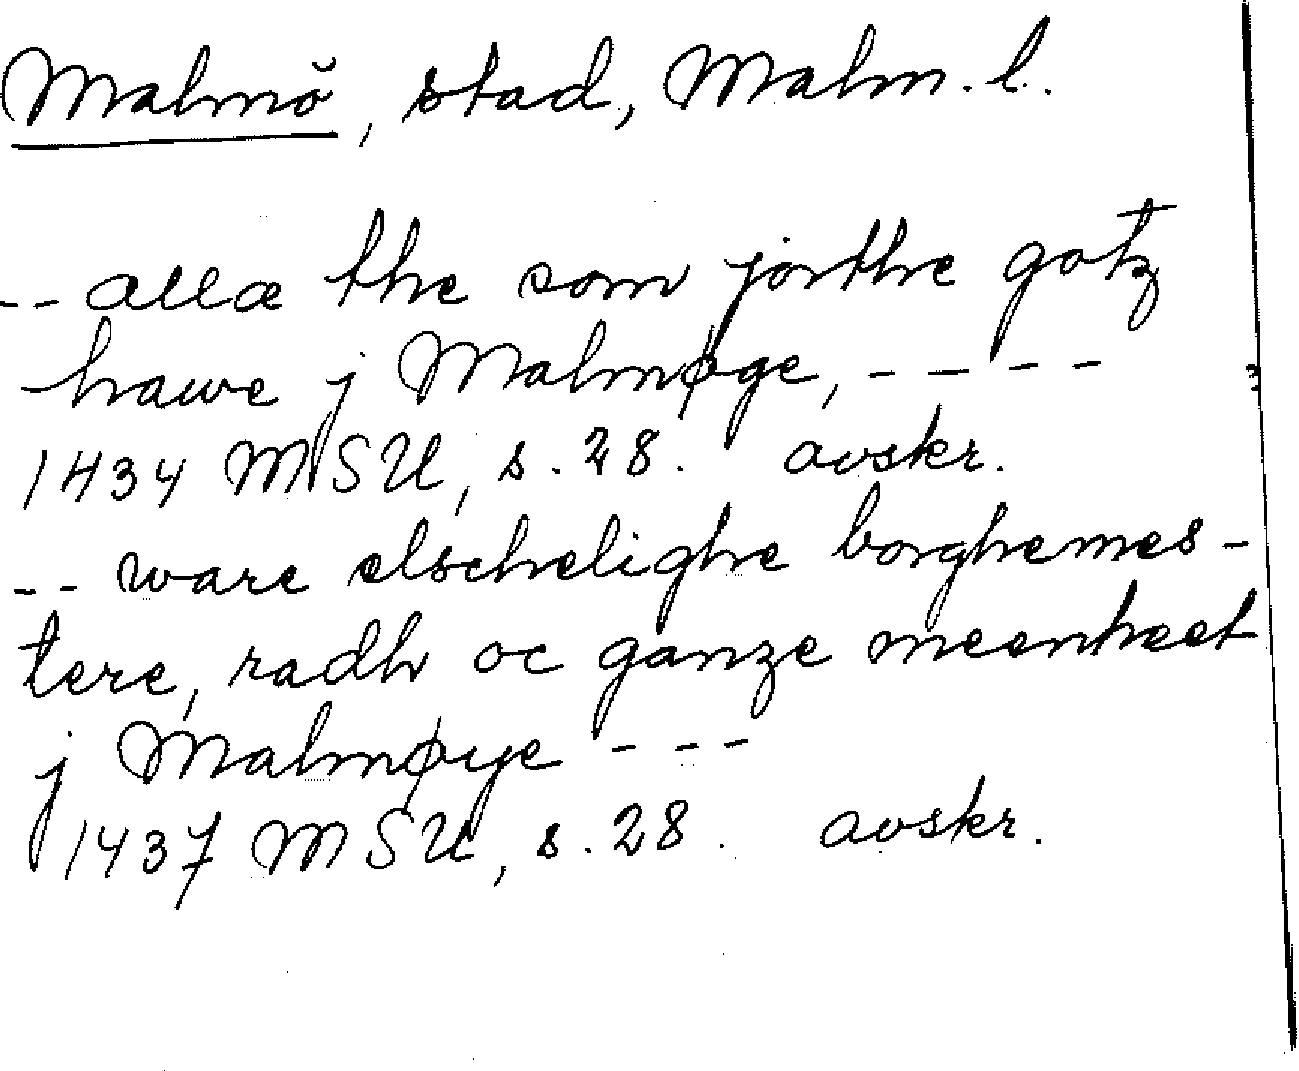 Malmö, stad, Malm. l.
-- allæ the som jorthe gotz
hawe j Malmøge, ----
1434 MSU, s. 28. avskr.
-- ware elschelighe borghemes-
tere, radh oc ganze meenheet
j Malmøye ---
1437 MSU, s. 28. avskr.